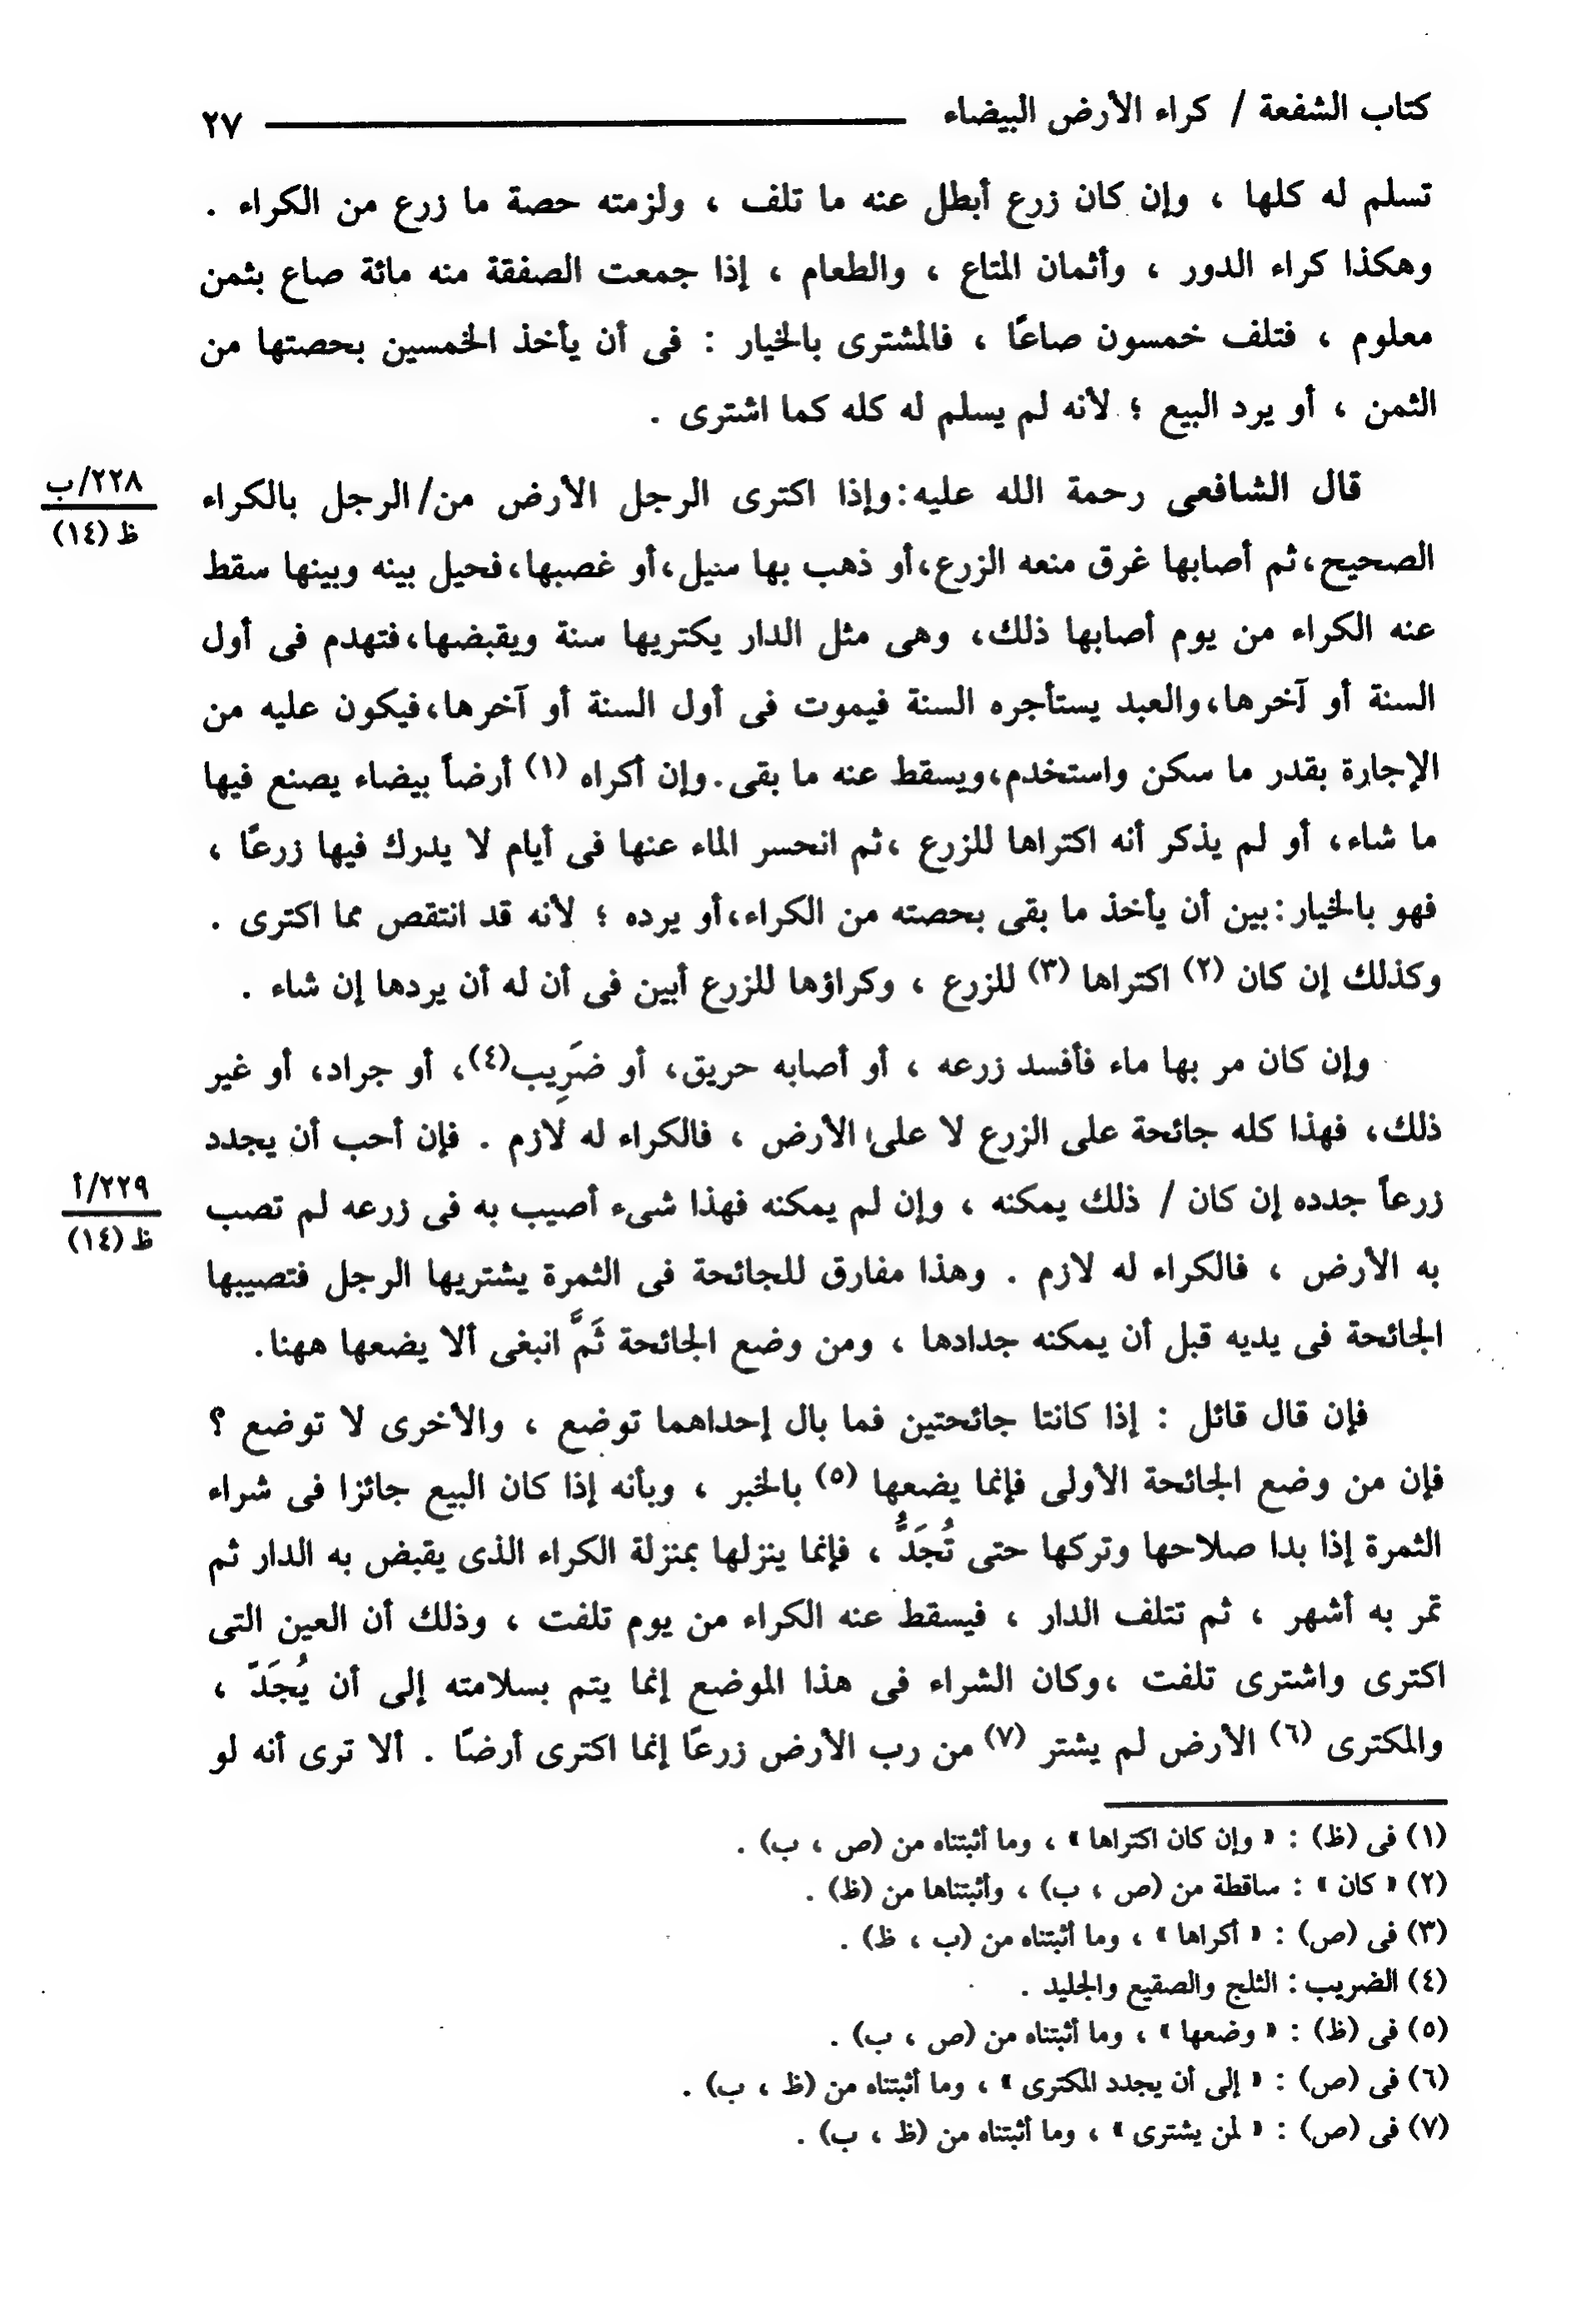 كتاب الشفعة / كراء الأرض البيضاء ــــــــــــ ٢٧
تسلم له كلها ، وإن كان زرع أبطل عنه ما تلف ، ولزمته حصة ما زرع من الكراء .
وهكذا كراء الدور ، وأثمان المتاع ، والطعام ، إذا جمعت الصفقة منه مائة صاع بثمن
معلوم ، فتلف خمسون صاعًا ، فالمشترى بالخيار : فى أن يأخذ الخمسين بحصتها من
الثمن ، أو يرد البيع ؛ لأنه لم يسلم له كله كما اشترى .
قال الشافعى رحمة الله عليه:وإذا اكترى الرجل الأرض من/الرجل بالكراء
٢٢٨/ب
ظ (١٤)
الصحيح،ثم أصابها غرق منعه الزرع،أو ذهب بها سيل،أو غصبها،فحيل بينه وبينها سقط
عنه الكراء من يوم أصابها ذلك، وهى مثل الدار يكتريها سنة ويقبضها،فتهدم فى أول
السنة أو آخرها،والعبد يستأجره السنة فيموت فى أول السنة أو آخرها،فيكون عليه من
الإجارة بقدر ما سكن واستخدم،ويسقط عنه ما بقى.وإن أكراه (١) أرضاً بيضاء يصنع فيها
ما شاء، أو لم يذكر أنه اكتراها للزرع ،ثم انحسر الماء عنها فى أيام لا يدرك فيها زرعًا ،
فهو بالخيار:بين أن يأخذ ما بقى بحصته من الكراء،أو يرده ؛ لأنه قد انتقص مما اكترى .
وكذلك إن كان (٢) اكتراها (٣) للزرع ، وكراؤها للزرع أبين فى أن له أن يردها إن شاء .
وإن كان مر بها ماء فأفسد زرعه ، أو أصابه حريق، أو ضَرِيب(٤)، أو جراد، أو غير
ذلك، فهذا كله جائحة على الزرع لا على الأرض ، فالكراء له لازم . فإن أحب أن يجدد
زرعاً جدده إن كان / ذلك يمكنه ، وإن لم يمكنه فهذا شىء أصيب به فى زرعه لم تصب
٢٢٩/أ
ظ (١٤)
به الأرض ، فالكراء له لازم . وهذا مفارق للجائحة فى الثمرة يشتريها الرجل فتصيبها
الجائحة فى يديه قبل أن يمكنه جدادها ، ومن وضع الجائحة ثَمَّ انبغى ألا يضعها ههنا.
فإن قال قائل : إذا كانتا جائحتين فما بال إحداهما توضع ، والأخرى لا توضع ؟
فإن من وضع الجائحة الأولى فإنما يضعها (٥) بالخبر ، وبأنه إذا كان البيع جائزا فى شراء
الثمرة إذا بدا صلاحها وتركها حتى تُجَدُّ ، فإنما ينزلها بمنزلة الكراء الذى يقبض به الدار ثم
تمر به أشهر ، ثم تتلف الدار ، فيسقط عنه الكراء من يوم تلفت ، وذلك أن العين التى
اكترى واشترى تلفت ،وكان الشراء فى هذا الموضع إنما يتم بسلامته إلى أن يُجَدّ ،
والمكترى (٦) الأرض لم يشتر (٧) من رب الأرض زرعًا إنما اكترى أرضًا . ألا ترى أنه لو
(١) فى (ظ) : « وإن كان اكتراها » ، وما أثبتناه من (ص ، ب) .
(٢) « كان » : ساقطة من (ص ، ب) ، وأثبتناها من (ظ) .
(٣) فى (ص) : « أكراها » ، وما أثبتناه من (ب ، ظ) .
(٤) الضريب : الثلج والصقيع والجليد .
(٥) فى (ظ) : « وضعها » ، وما أثبتناه من (ص ، ب) .
(٦) فى (ص) : « إلى أن يجدد المكترى » ، وما أثبتناه من (ظ ، ب) .
(٧) فى (ص) : « لمن يشترى » ، وما أثبتناه من (ظ ، ب) .